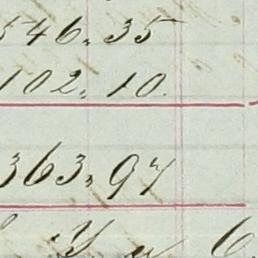 546.35
102.10.
363.97